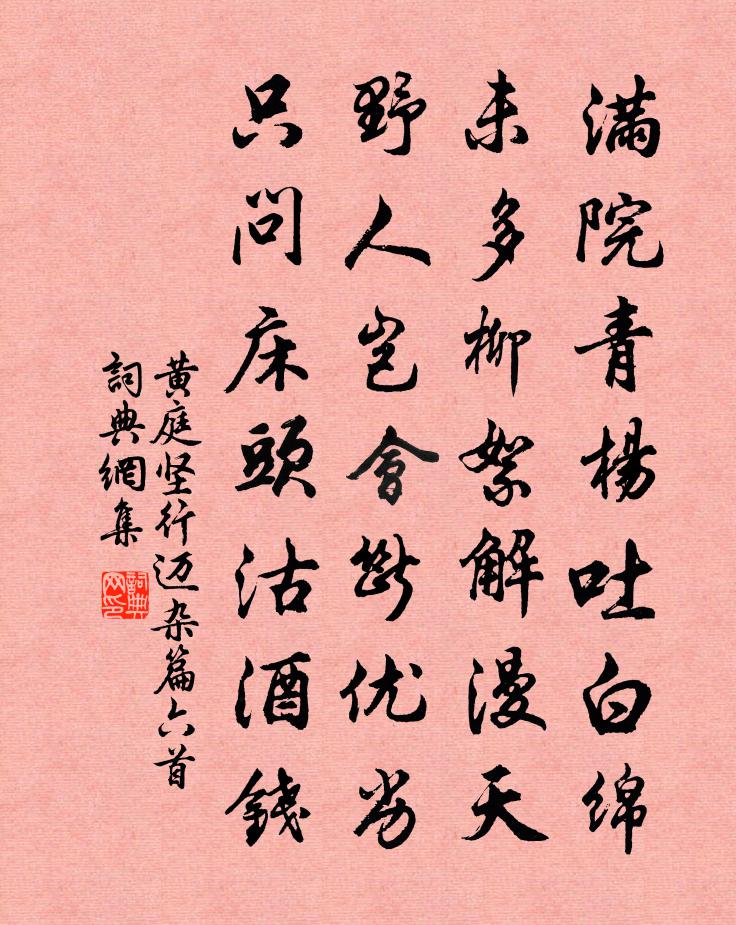 满院青楊吐白綿
未多柳絮解漫天
野人岂會斷优劣
只問床頭沽酒錢
黄庭坚行迈杂篇六首
詞典網集
詞典网印